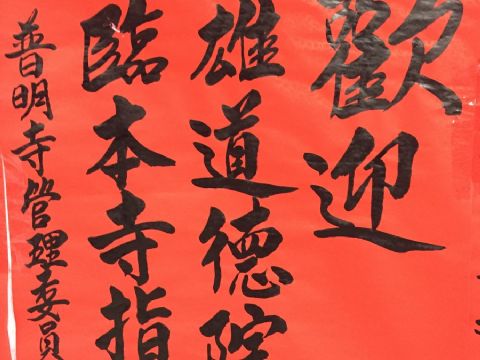 歡迎
雄道德院
臨本寺指
普明寺管理委員